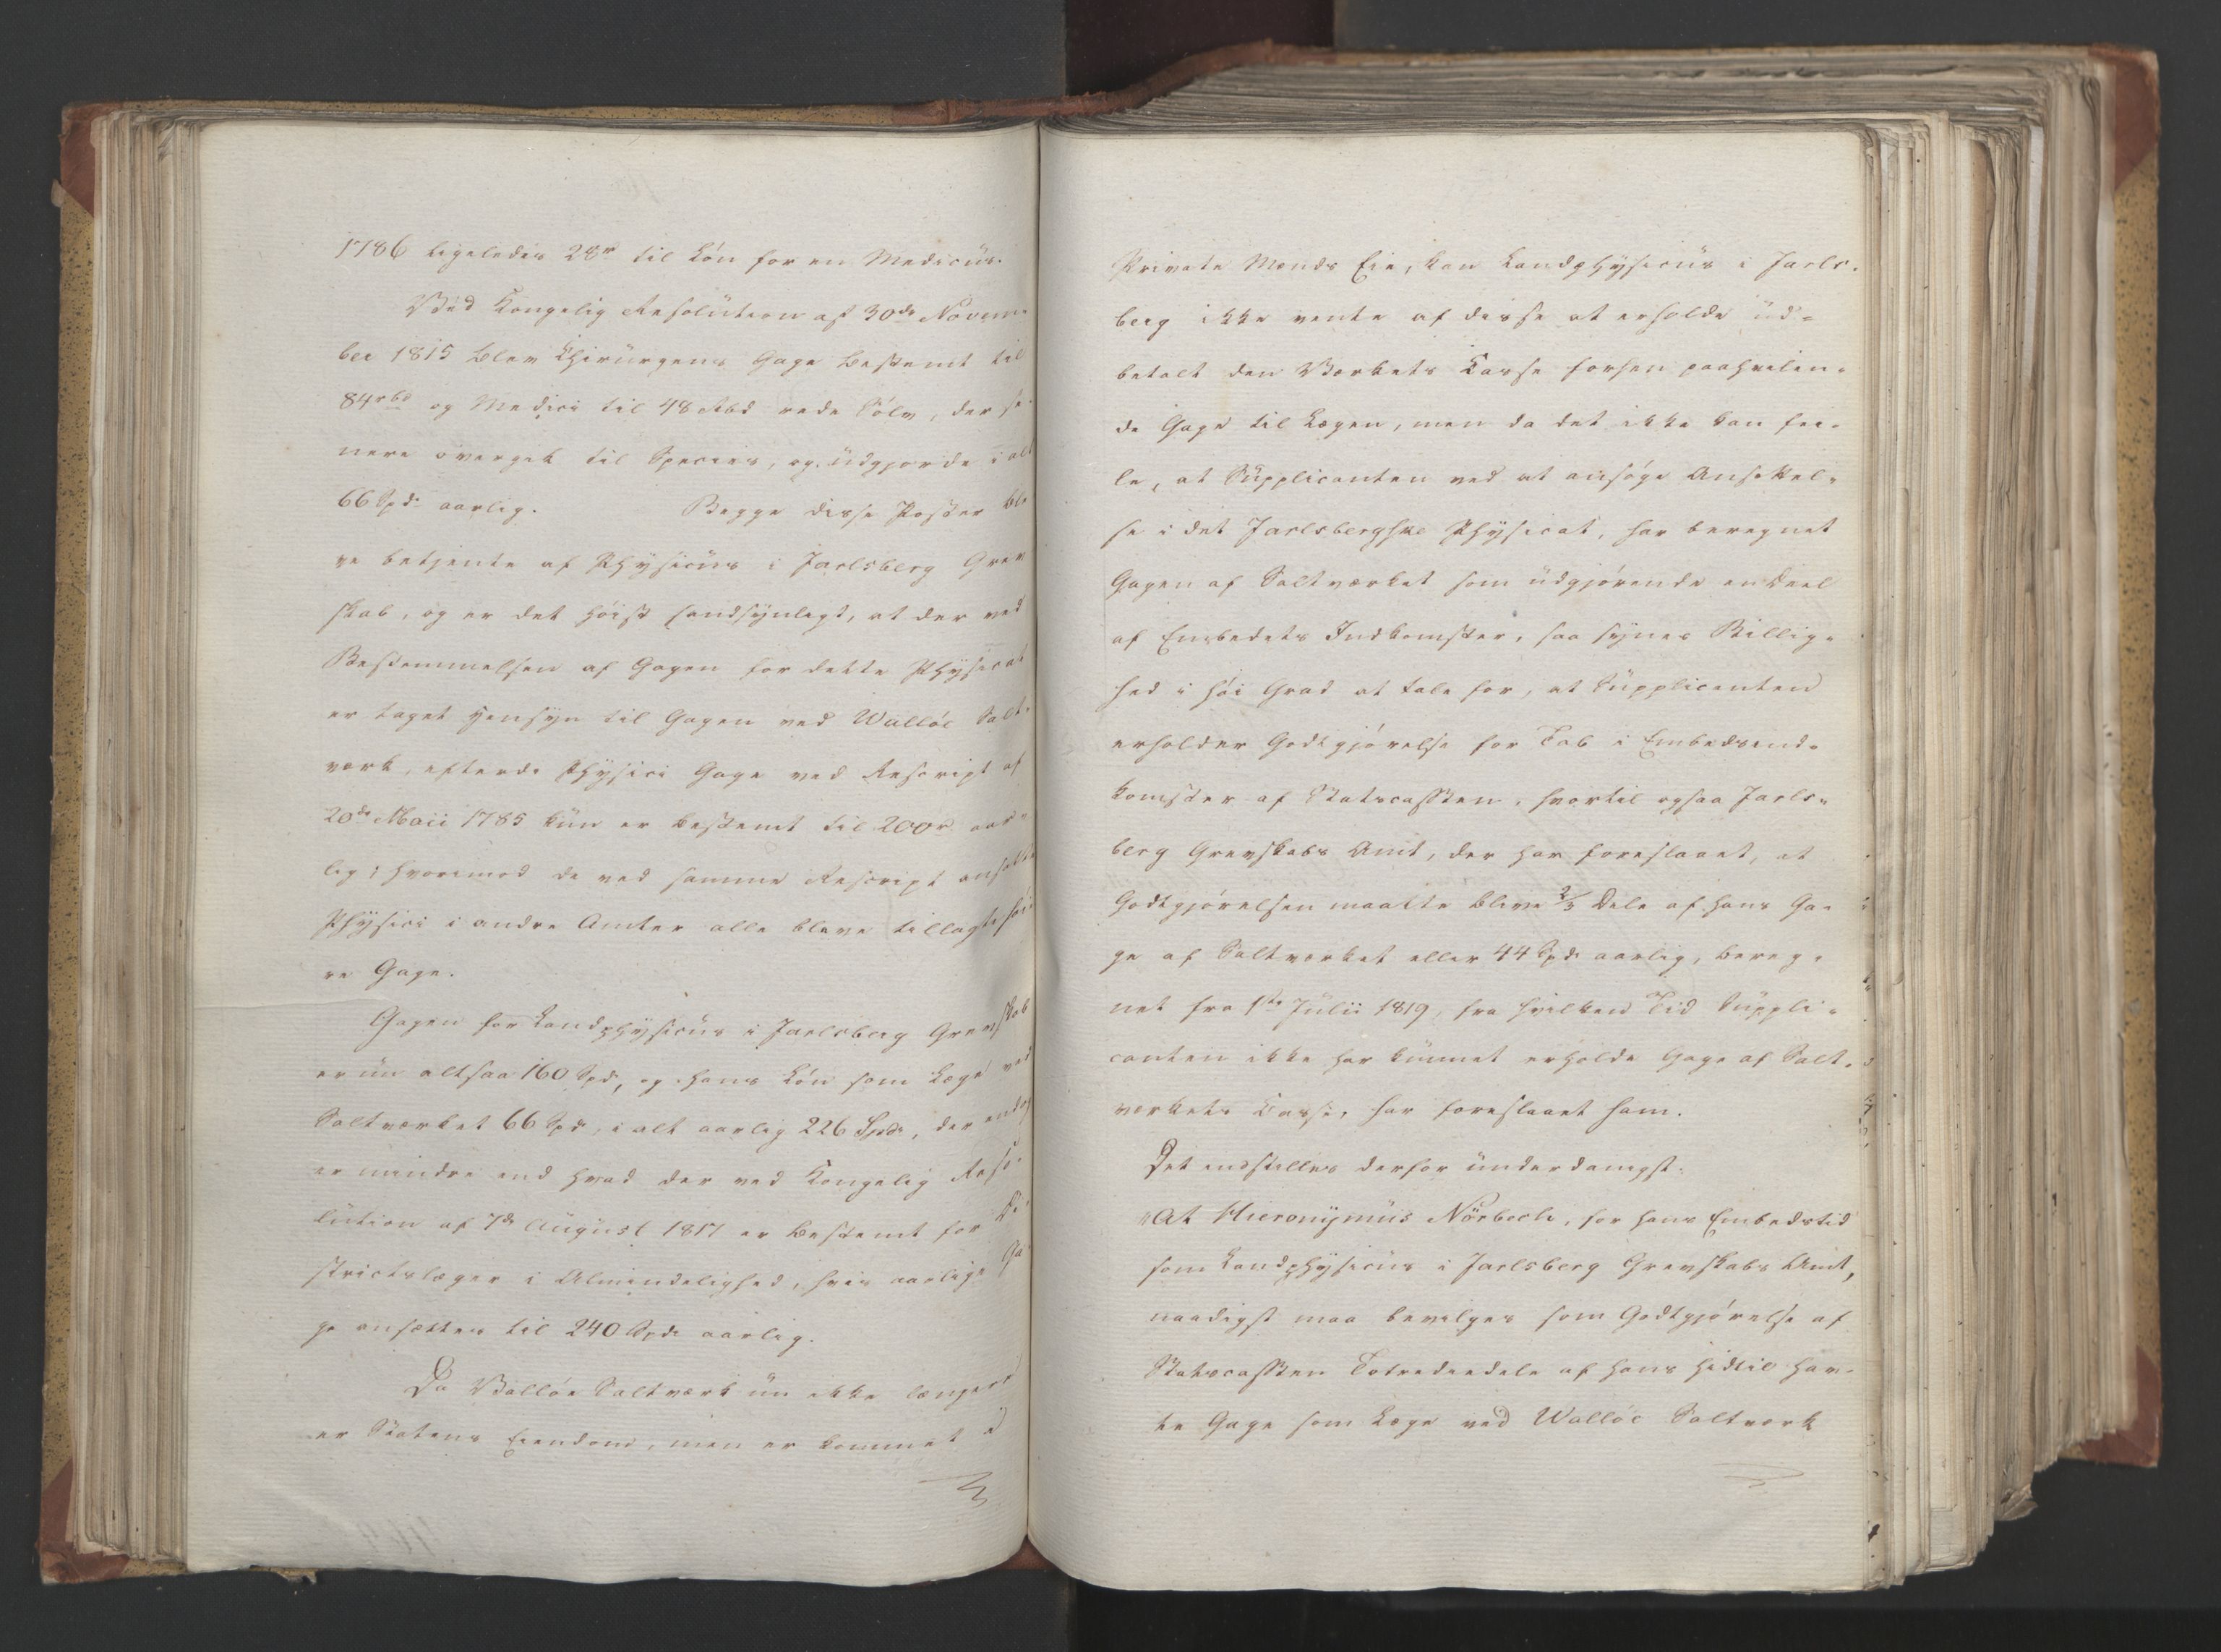 1786 ligeledes 28r til Løn for en Medicus.
Ved Kongelig Resolution af 30de Novem¬
ber 1815 blev Chirurgens Gage bestemt til
84rbd og Medici til 48 Rbd rede Sølv, der se¬
nere overgik til Species, og udgjorde i alt
66 Spd. aarlig. Begge disse Poster ble
ve betjente af Physicus i Jarlsberg Grev
skab, og er det høist sandsynligt, at der ved
Bestemmelsen af Gagen for dette Physicat
er taget Hensyn til Gagen ved Walløe Salt¬
værk, efterdi Physici Gage ved Rescript af
20de Maii 1785 kun er bestemt til 200r aar¬
lig; hvorimod de ved samme Rescript ansatte
Physici i andre Amter alle bleve tillagte høie
re Gage.
Gagen for Landphysicus i Jarlsberg Grevskab
er nu altsaa 160 Spd, og hans Løn som Læge ved
Saltværket 66 Spd, i alt aarlig 226 Spd, der endog
er mindre end hvad der ved Kongelig Reso¬
lution af 7de August 1817 er bestemt for Di¬
strictslæger i Almindelighed, hvis aarlige Ga¬
ge ansættes til 240 Spd. aarlig.
Da Valløe Saltværk nu ikke længere
er Statens Eiendom, men er kommet i
Private Mænds Eie, kan Landphysicus i Jarls¬
berg ikke vente af disse at erholde ud¬
betalt den Værkets Kasse forhen paahvilen¬
de Gage til Lægen, men da det ikke kan fei¬
le, at Supplicanten ved at ansøge Ansættel¬
se i det Jarlsbergske Physicat, har beregnet
Gagen af Saltværket som udgjørende en Deel
af Embedets Indkomster, saa synes Billig¬
hed i høi Grad at tale for, at Supplicanten
erholder Godtgjørelse for Tab i Embedsind¬
komster af Statscassen, hvortil ogsaa Jarls¬
berg Grevskabs Amt, der har foreslaaet, at
Godtgjørelsen maatte blive 2/3 Dele af hans Ga¬
ge af Saltværket eller 44 Spd. aarlig, bereg¬
net fra 1ste Julii 1819, fra hvilken Tid Suppli¬
canten ikke har kunnet erholde Gage af Salt¬
værkets Casse, har foreslaaet ham.
Det indstilles derfor underdanigst:
"At Hieronymus Nørbech, for hans Embedstid
som Landphysicus i Jarlsberg Grevskabs Amt,
naadigst maa bevilges som Godtgjørelse af
Statscassen Totrediedele af hans hidtil hav¬
te Gage som Læge ved Walløe Saltværk